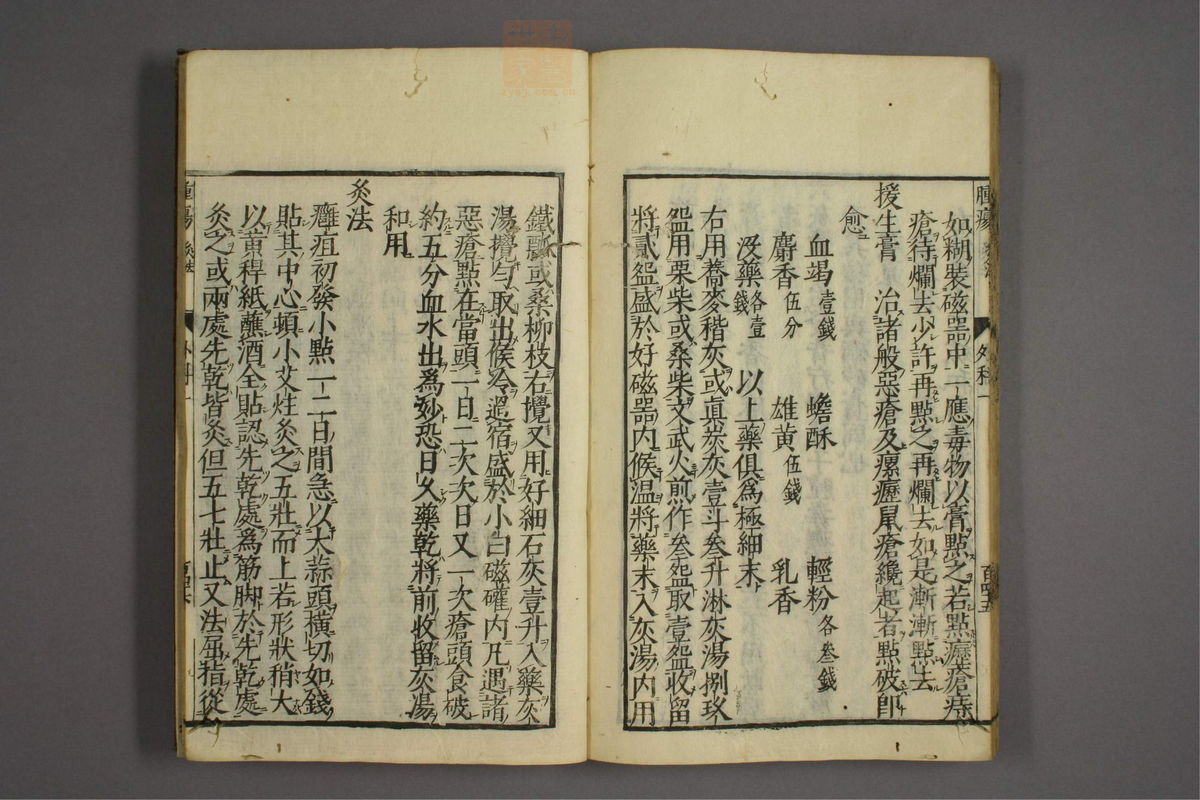 腫瘍 灸法 外科一 百四五
如糊裝磁器中一應毒物以膏點之若點瘜瘡痔
瘡待爛去少許再點之再爛去如是漸漸點去
援生膏 治諸般惡瘡及瘰癧鼠瘡纔起者點破卽
愈
血竭壹錢 蟾酥 輕粉各叁錢
麝香伍分 雄黃伍錢 乳香
沒藥各壹錢 以上藥俱爲極細末
右用蕎麥稭灰或眞炭灰壹斗叁升淋灰湯捌玖
盌用栗柴或桑柴文武火煎作叁盌取壹盌收留
將貳盌盛於好磁器內候温將藥末入灰湯內用
鐵瓢或桑柳枝右攪又用好細石灰壹升入藥灰
湯攪勻取出候冷過宿盛於小白磁罐內凡遇諸
惡瘡點在當頭一日二次次日又一次瘡頭食破
約五分血水出爲妙恐日久藥乾將前收留灰湯
和用
灸法
癰疽初發小點一二日間急以大蒜頭橫切如錢
貼其中心頓小艾炷灸之五壯而上若形狀稍大
以黃稈紙蘸酒全貼認先乾處爲筋脚於先乾處
灸之或兩處先乾皆灸但五七壯止又法屈指從
腫瘍 灸法 外科一 百四六